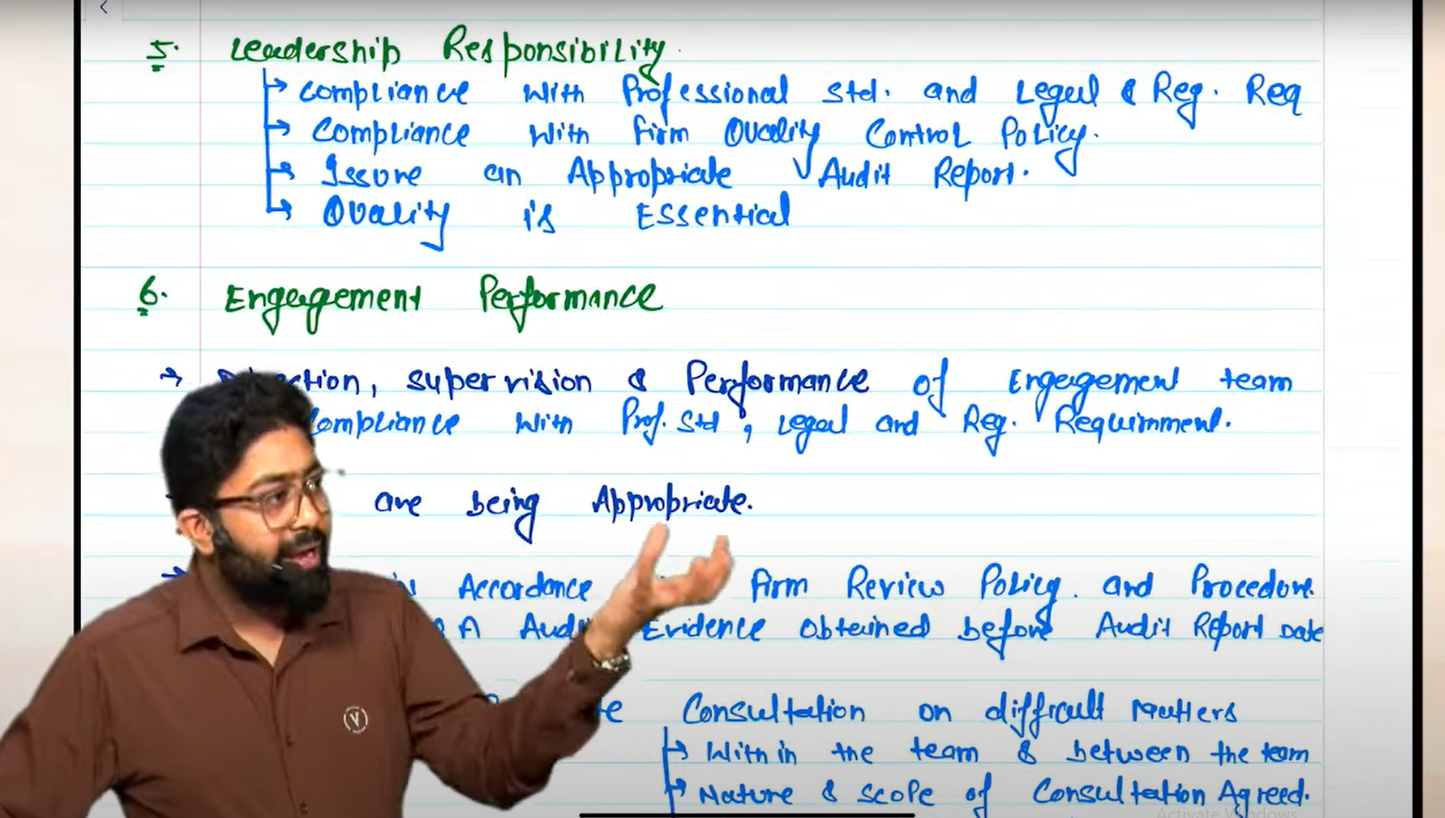 5. Leadership Responsibility.
→ Compliance with Professional Std. and Legal & Reg. Req
→ Compliance with firm Quality Control Policy.
→ Issure an Appropriate Audit Report.
→ Quality is Essential
6. Engagement Performance
→ supervision & Performance of Engagement team
with Prof. Std, Legal and Reg. Requirnment.
are being Appropriate.
Accordance firm Review Policy. and Procedure.
A Evidence Obtained before Audit Report Date
Consultation on difficult Matters
→ With in the team & between the team
→ Nature & scope of Consultation Agreed.
V
Activate Windows